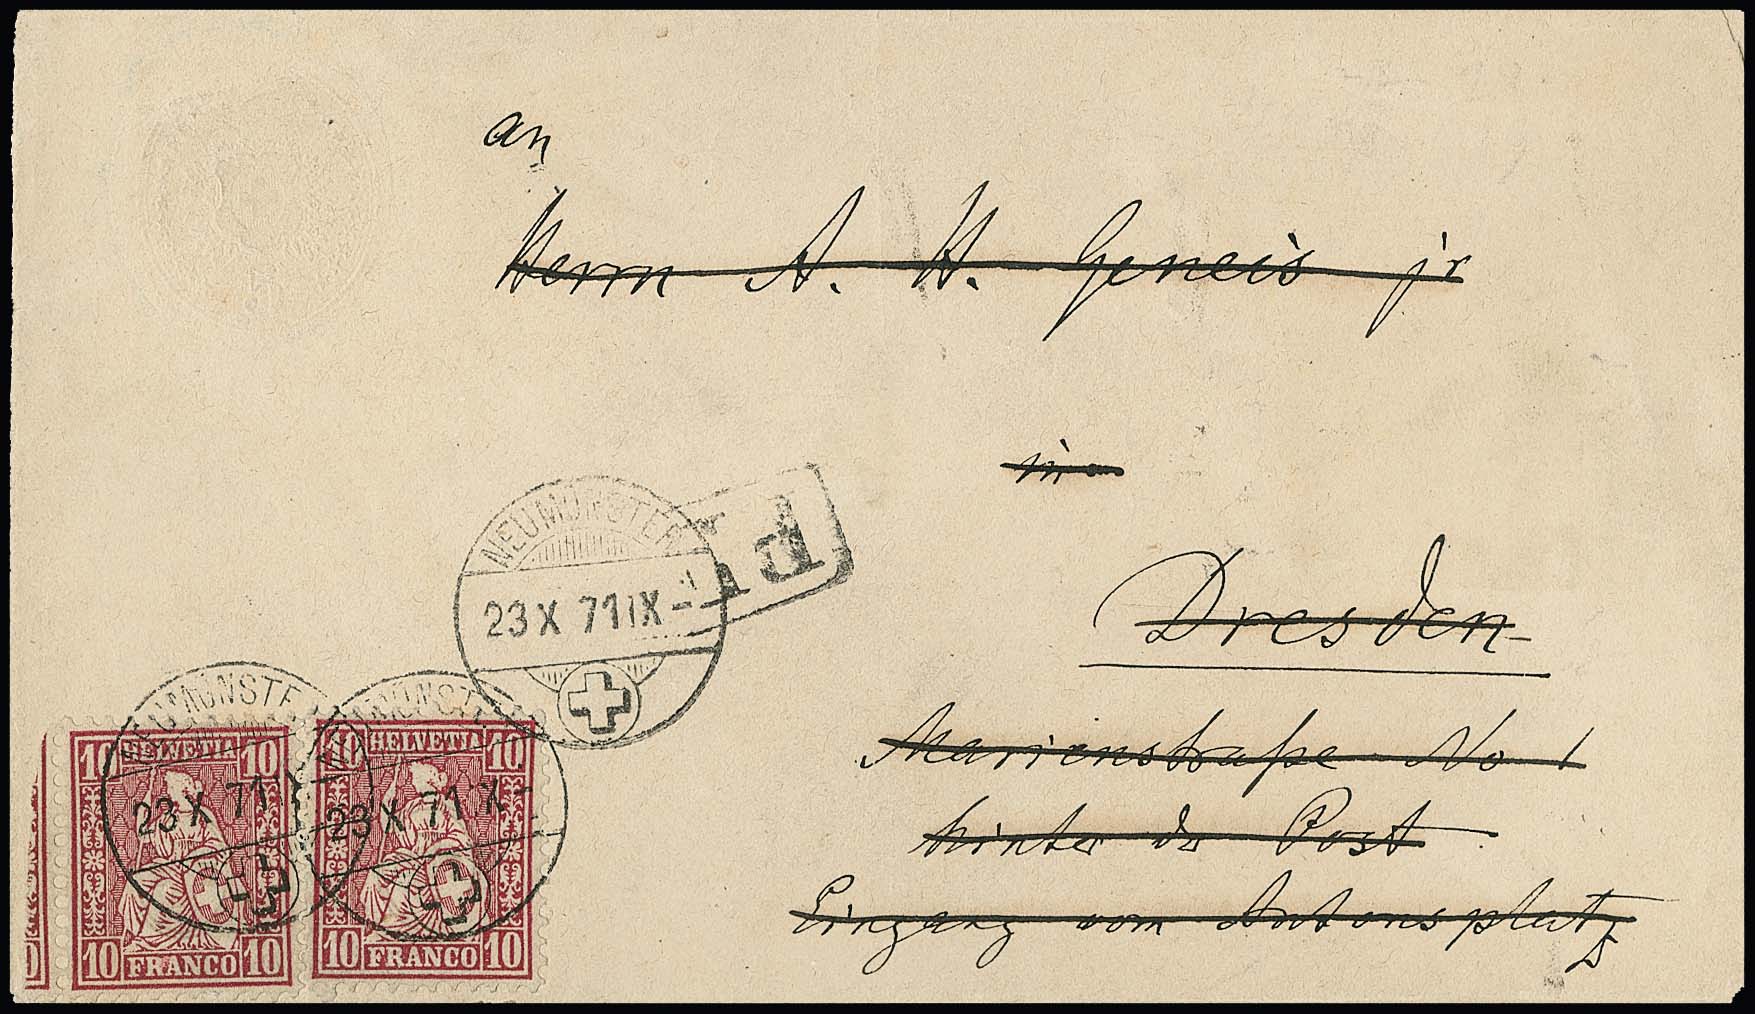 an
Herrn A. H. Geneis jr
in
Dresden
Marienstraße No 1
hinter der Post
Eingang vom Antonsplatz
NEUMÜNSTER
23 X 71 IX-
P
NEUMÜNSTE
23 X 71 IX
NEUMÜNSTE
23 X 71 IX-
10 HELVETIA 10
10 FRANCO 10
10 HELVETIA 10
10 FRANCO 10